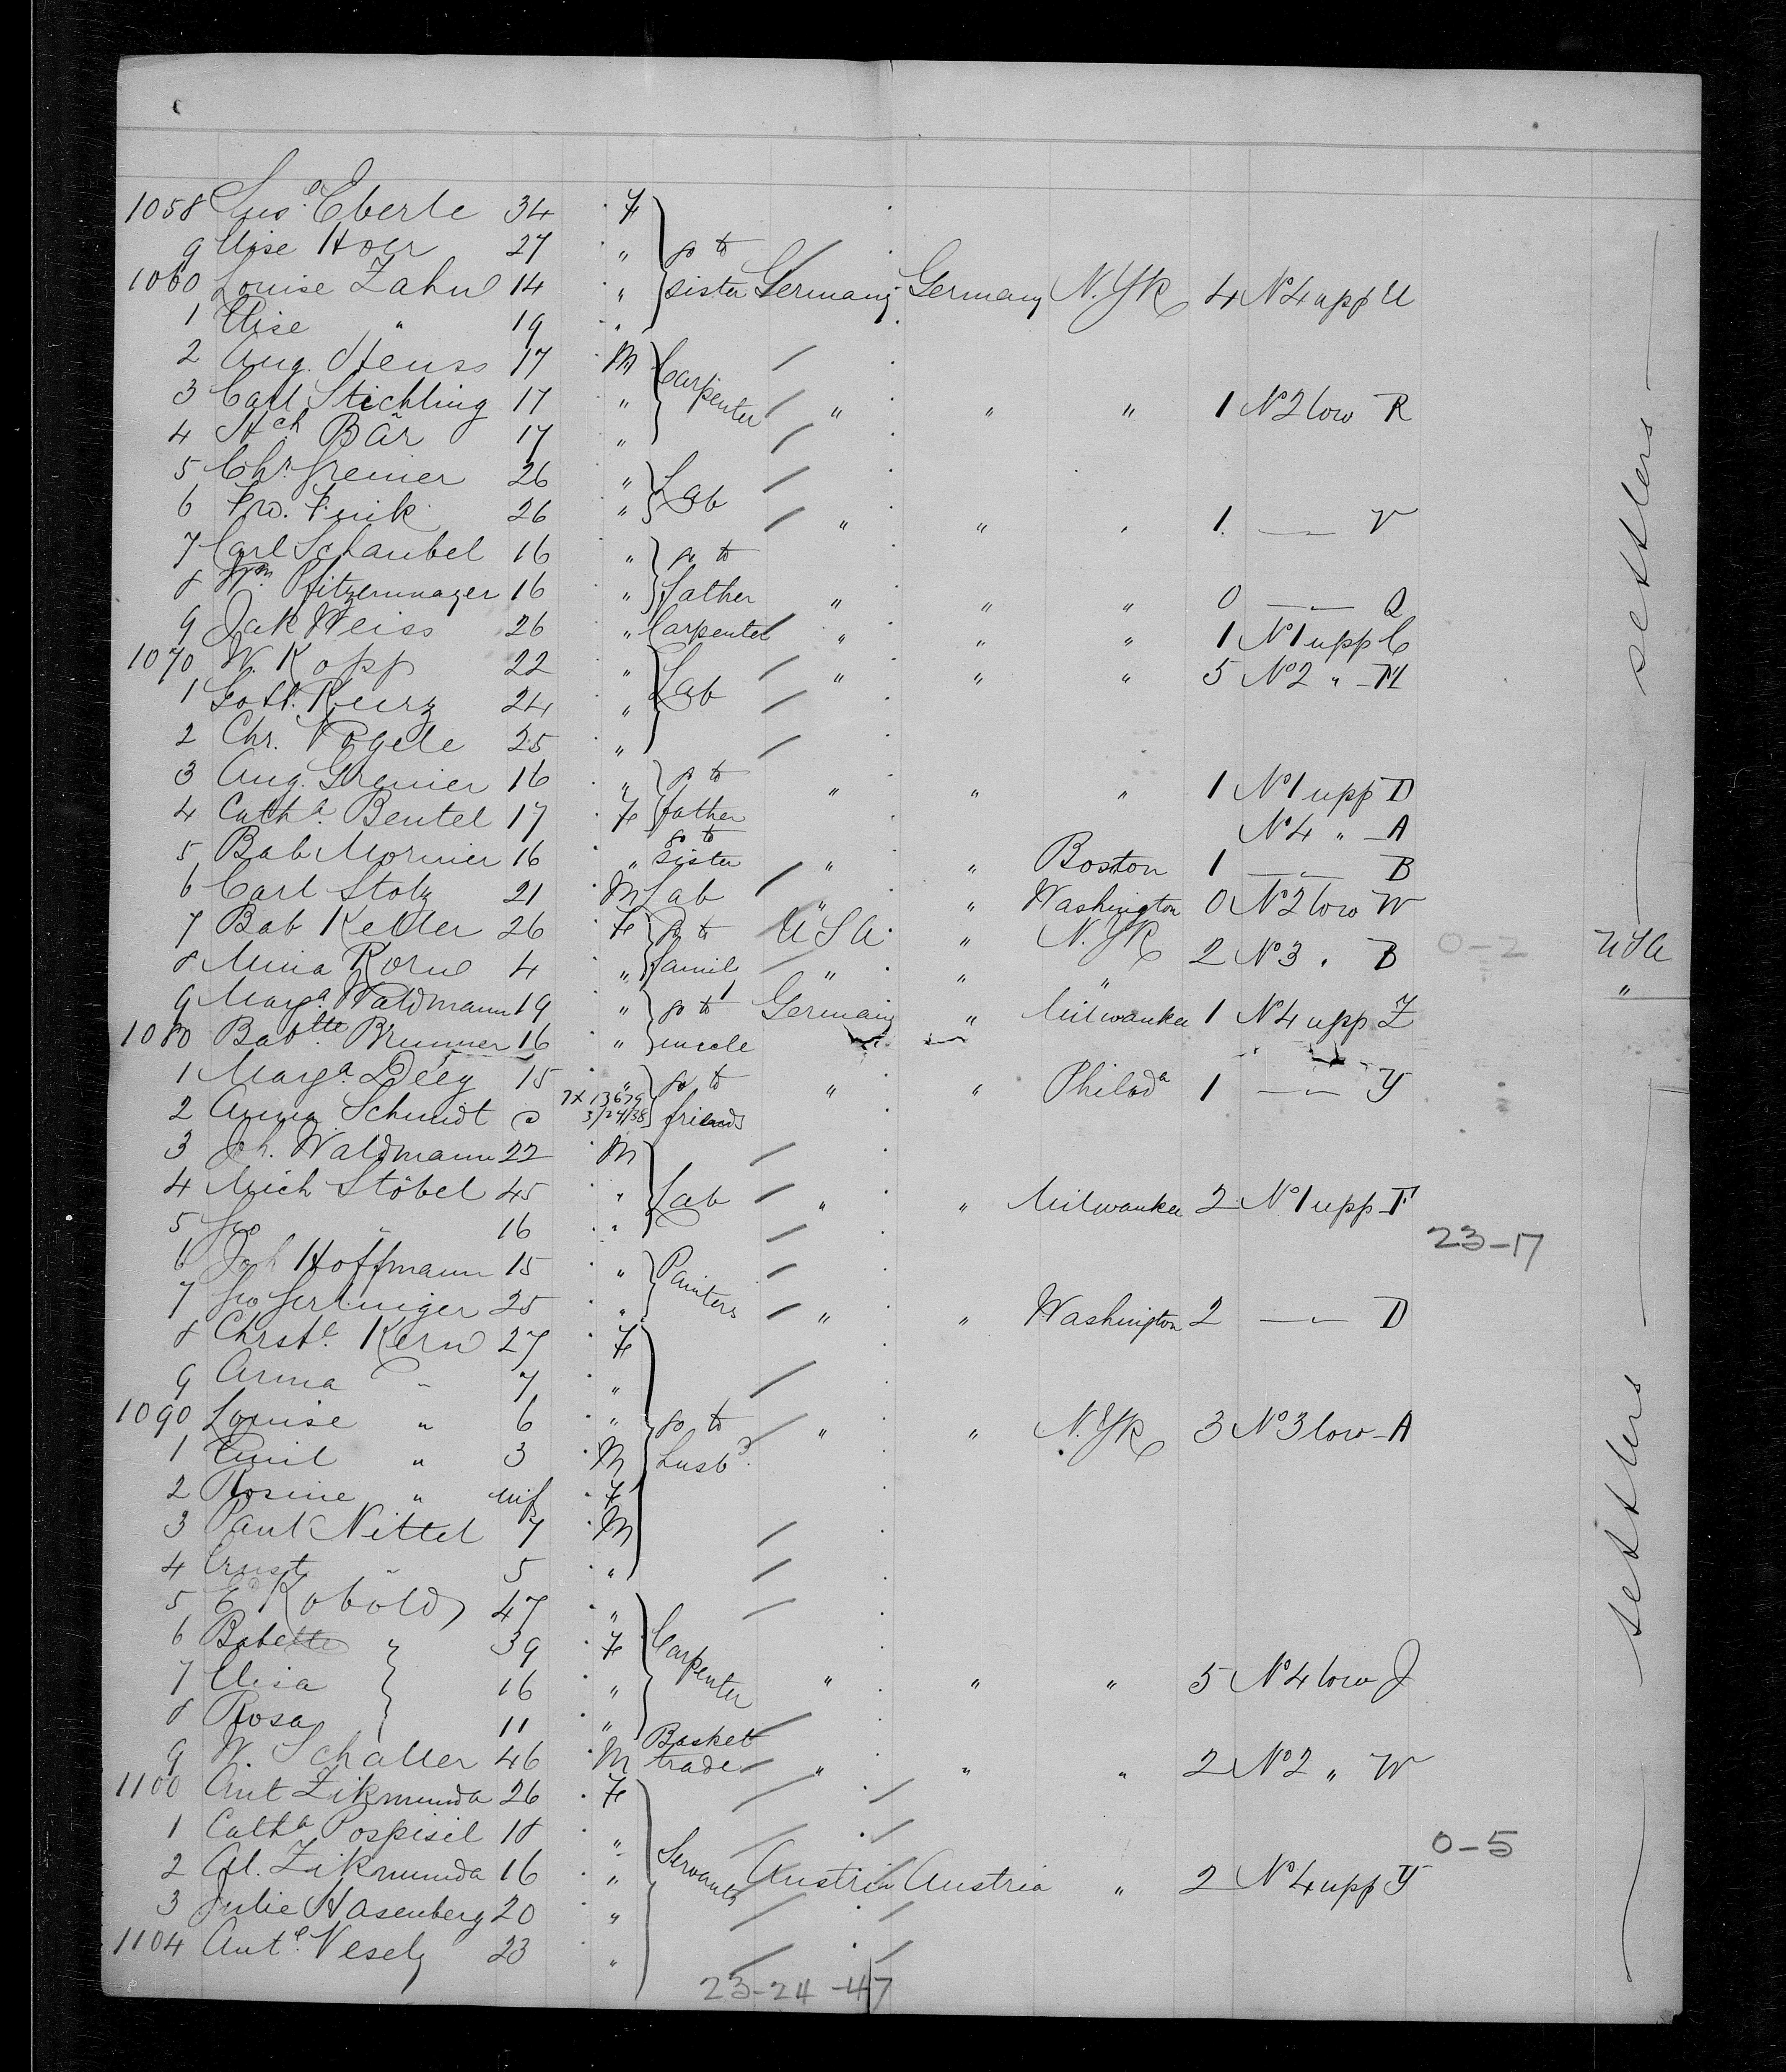 1058 Eberle 34 F
9 Elise Hoer 27 " go to
1060 Louise Zahn 14 " sister Germany Germany N.YK 4 No4 upp U
1 Elise " 19 "
2 Aug. 17 M Carpenter
3 Carl Stichling 17 " " " " 1 No2 low R
4 Hch Bär 17 "
5 Chr. Greiner 26 " Lab
6 26 " " " " 1 — " — V
7 Carl Schaubel 16 " go to
8 Wm Pfitzenmayer 16 " father " " " 0 — " — Q
9 Jak Weiss 26 " Carpenter " " " 1 No1 upp C
1070 W. Kopp 22 " Lab " " " 5 No2 " M
1 Gott. Kurz 24 "
2 Chr. Vogele 25 "
3 Aug. Greiner 16 " go to " " " 1 No1 upp D
4 Catha. Beutel 17 F father No4 " A
5 Bab 16 " go to sister " " Boston 1 — " — B
6 Carl Stolz 21 M Lab " " Washington 0 No2 low W
7 Bab Keller 26 F go to U S A " N.YK 2 No3 " B 0-2 U S A
8 Mina Korn 4 " family " " " "
9 Marga. Waldmann 19 " go to Germany " Milwaukee 1 No4 upp Z
1080 Babtte Brunner 16 " uncle
1 Marga. 15 " go to " " Philada 1 — " — Y
2 Anna Schmidt 7X13679 3/24/38 friends
3 Joh. Waldmann 22 M
4 Mich Stöbel 45 " Lab " " Milwaukee 2 No1 upp F
5 Geo " 16 " 23-17
6 Joh Hoffmann 15 " Painters
7 Geo 25 " " " Washington 2 — " — D
8 Chrste. Kern 27 F
9 Anna " 7 "
1090 Louise " 6 " go to " " N.YK 3 No3 low A
1 Emil " 3 M husbd.
2 Rosine " inf F
3 Paul Nittel 7 M
4 Ernst " 5 "
5 Kobold 47 "
6 Babette " 39 F Carpenter
7 Elisa 16 " " " " 5 No4 low J
8 Rosa 11 "
9 W. Schaller 46 M Basket trade " " " 2 No2 " W
1100 Ant Zikmunda 26 F
1 Catha Pospisil 18 " 0-5
2 Al. Zikmunda 16 " Servants Austria Austria " 2 No4 upp Y
3 Julie Hasenberg 20 "
1104 Ante. Vesely 23 "
23-24-47
settlers
settlers